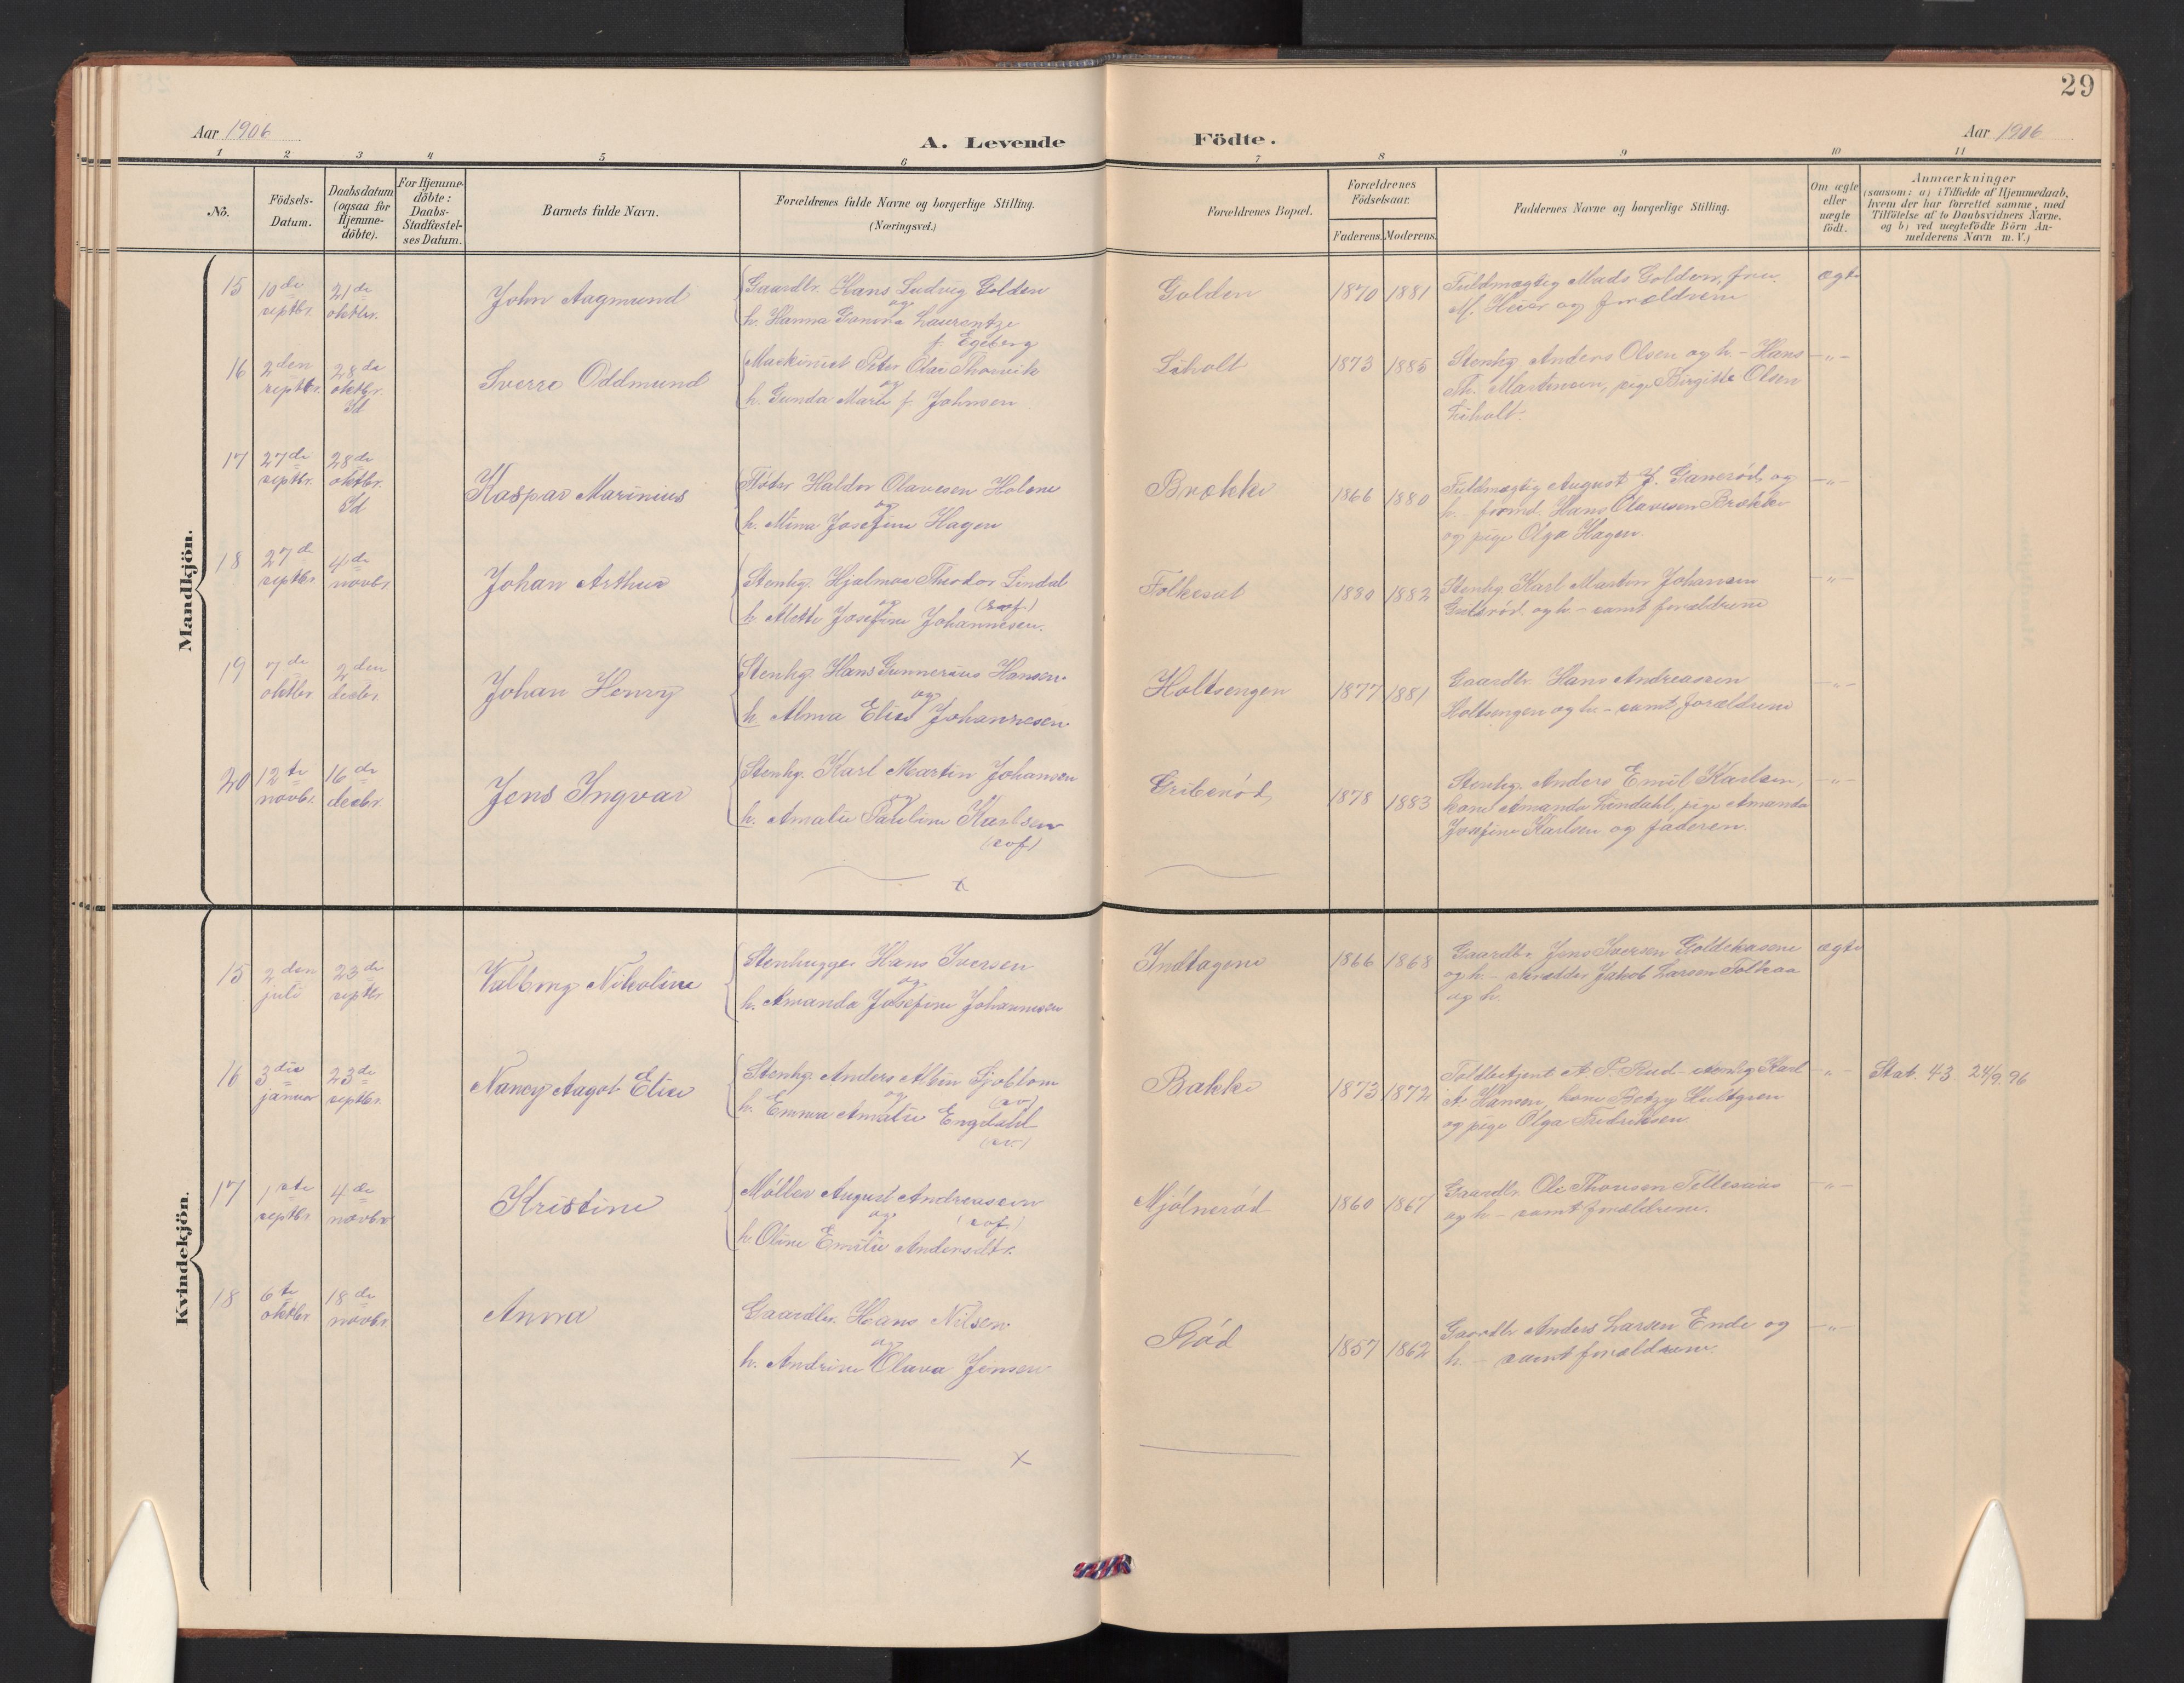 29
Aar 1906
A. Levende Födte.
Aar 1906
1 2 3 4 5 6 7 8 9 10 11
No.
Födsels-
Datum.
Daabsdatum
(ogsaa for
Hjemme-
döbte).
For Hjemme-
döbte:
Daabs-
Stadfæstel-
ses Datum.
Barnets fulde Navn.
Forældrenes fulde Navne og borgerlige Stilling.
(Næringsvei.)
Forældrenes Bopæl.
Forældrenes
Födselsaar.
Faderens. Moderens.
Faddernes Navne og borgerlige Stilling.
Om ægte
eller
uægte
födt.
Anmærkninger
(saasom: a) i Tilfælde af Hjemmedaab,
hvem der har forrettet samme, med
Tilföielse af to Daabsvidners Navne,
og b) ved uægtefödte Börn An-
melderens Navn m. V.)
Mandkjön.
15
10de
septbr.
21de
oktbr.
John Aagmund
Gaardbr. Hans Ludvig Golden
og
h. Hanna Gamina Laurentze
f. Egeberg
Golden
1870 1881
Fuldmægtig Mads Golden, fru
M. Heier og forældrene
ægte
16
2den
septbr.
28de
oktbr.
Id
Sverre Oddmund
Maskinist Peter Olai Thorvik
og
h. Gunda Marie f. Johnsen
Liholt
1873 1885
Stenhg. Anders Olsen og h. - Hans
Th. Martinsen, pige Birgitte Olsen
Liholt.
-"-
17
27de
septbr.
28de
oktbr.
Id
Kaspar Marinius
Fløter Haldor Olavesen Holene
og
h. Mina Josefine Hagen
Brække
1866 1880
Fuldmægtig August J. Ganerød og
h. - fhvmd. Hans Olavesen Brække
og pige Olga Hagen.
-"-
18
27de
septbr.
4de
novbr.
Johan Arthur
Stenhg. Hjalmar Theodor Lindal
og (svf)
h. Alette Josefine Johannesen.
Folkesat
1880 1882
Stenhg. Karl Martin Johansen
Gulsrød og h. - samt forældrene
-"-
19
7de
oktbr.
2den
decbr.
Johan Henry
Stenhg. Hans Gunnerius Hansen
og
h. Alma Elise Johannesen
Holtsengen
1877 1881
Gaardbr. Hans Andreassen
Holtsengen og h. - samt forældrene
-"-
20
12te
novbr.
16de
decbr.
Jens Ingvar
Stenhg. Karl Martin Johansen
og
h. Amalie Pauline Karlsen
(svf)
Griberød
1878 1883
Stenhg. Anders Emil Karlsen,
kone Amanda Lindahl, pige Amanda
Josefine Karlsen og faderen.
-"-
Kvindekjön.
15
2den
juli
23de
septbr.
Valborg Nikoline
Stenhugger Hans Iversen
og
h. Amanda Josefine Johannesen
Indtagene
1866 1868
Gaardbr. Jens Iversen Goldekasene
og h. - skrædder Jakob Larsen Folkaa
og h.
ægte
16
3die
januar
23de
septbr.
Nancy Aagot Elise
Stenhg. Anders Albin Sjøblom
og (sv)
h. Emma Amalie Engdahl
(sv)
Bakke
1873 1872
Toldbetjent A. P. Rud - stenhg. Karl
A. Hansen, kone Betzy Hultgren
og pige Olga Fredriksen.
-"-
Stat. 43 24/9.96
17
1ste
septbr.
4de
novbr.
Kristine
Møller August Andreassen
og (svf)
h. Oline Emilie Andersdtr.
Mjølnerød
1860 1867
Gaardbr. Ole Thorsen
og h. - samt forældrene.
-"-
18
6te
oktbr.
18de
novbr.
Anna
Gaardbr. Hans Nilsen
og
h. Andrine Olava Jensen
Rød
1857 1862
Gaardbr. Anders Larsen Ende og
h. - samt forældrene.
-"-